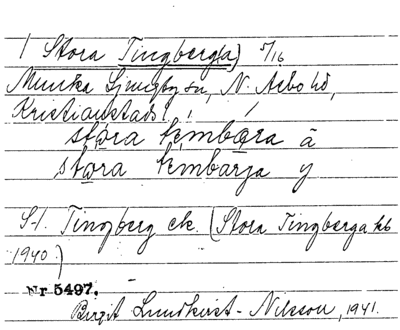 / Stora Tingberg(a) 5/16
Munka Ljungby sn, N. Åsbo hd,
Kristianstads l.
stǫra tembǫra å
stǫra tembarja y
S-l. Tingberg ek. (Stora Tingberga kb
1940.)
Nr 5497.
Birgit Lundkvist-Nilsson, 1941.